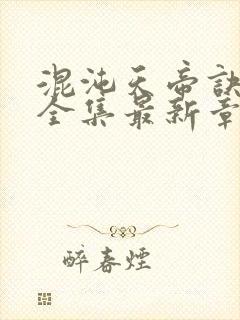 混沌天帝訣
全集最新章
醉春煙